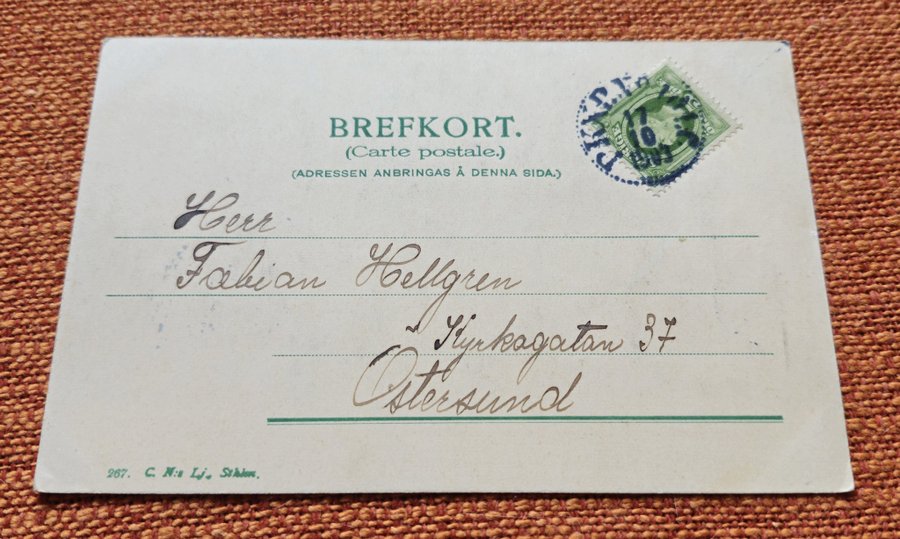 BREFKORT.
(Carte postale.)
(ADRESSEN ANBRINGAS Å DENNA SIDA.)
17
10
1903
Herr
Fabian Hellgren
Kyrkogatan 37
Östersund
267. C. N:s Lj., Sthlm.